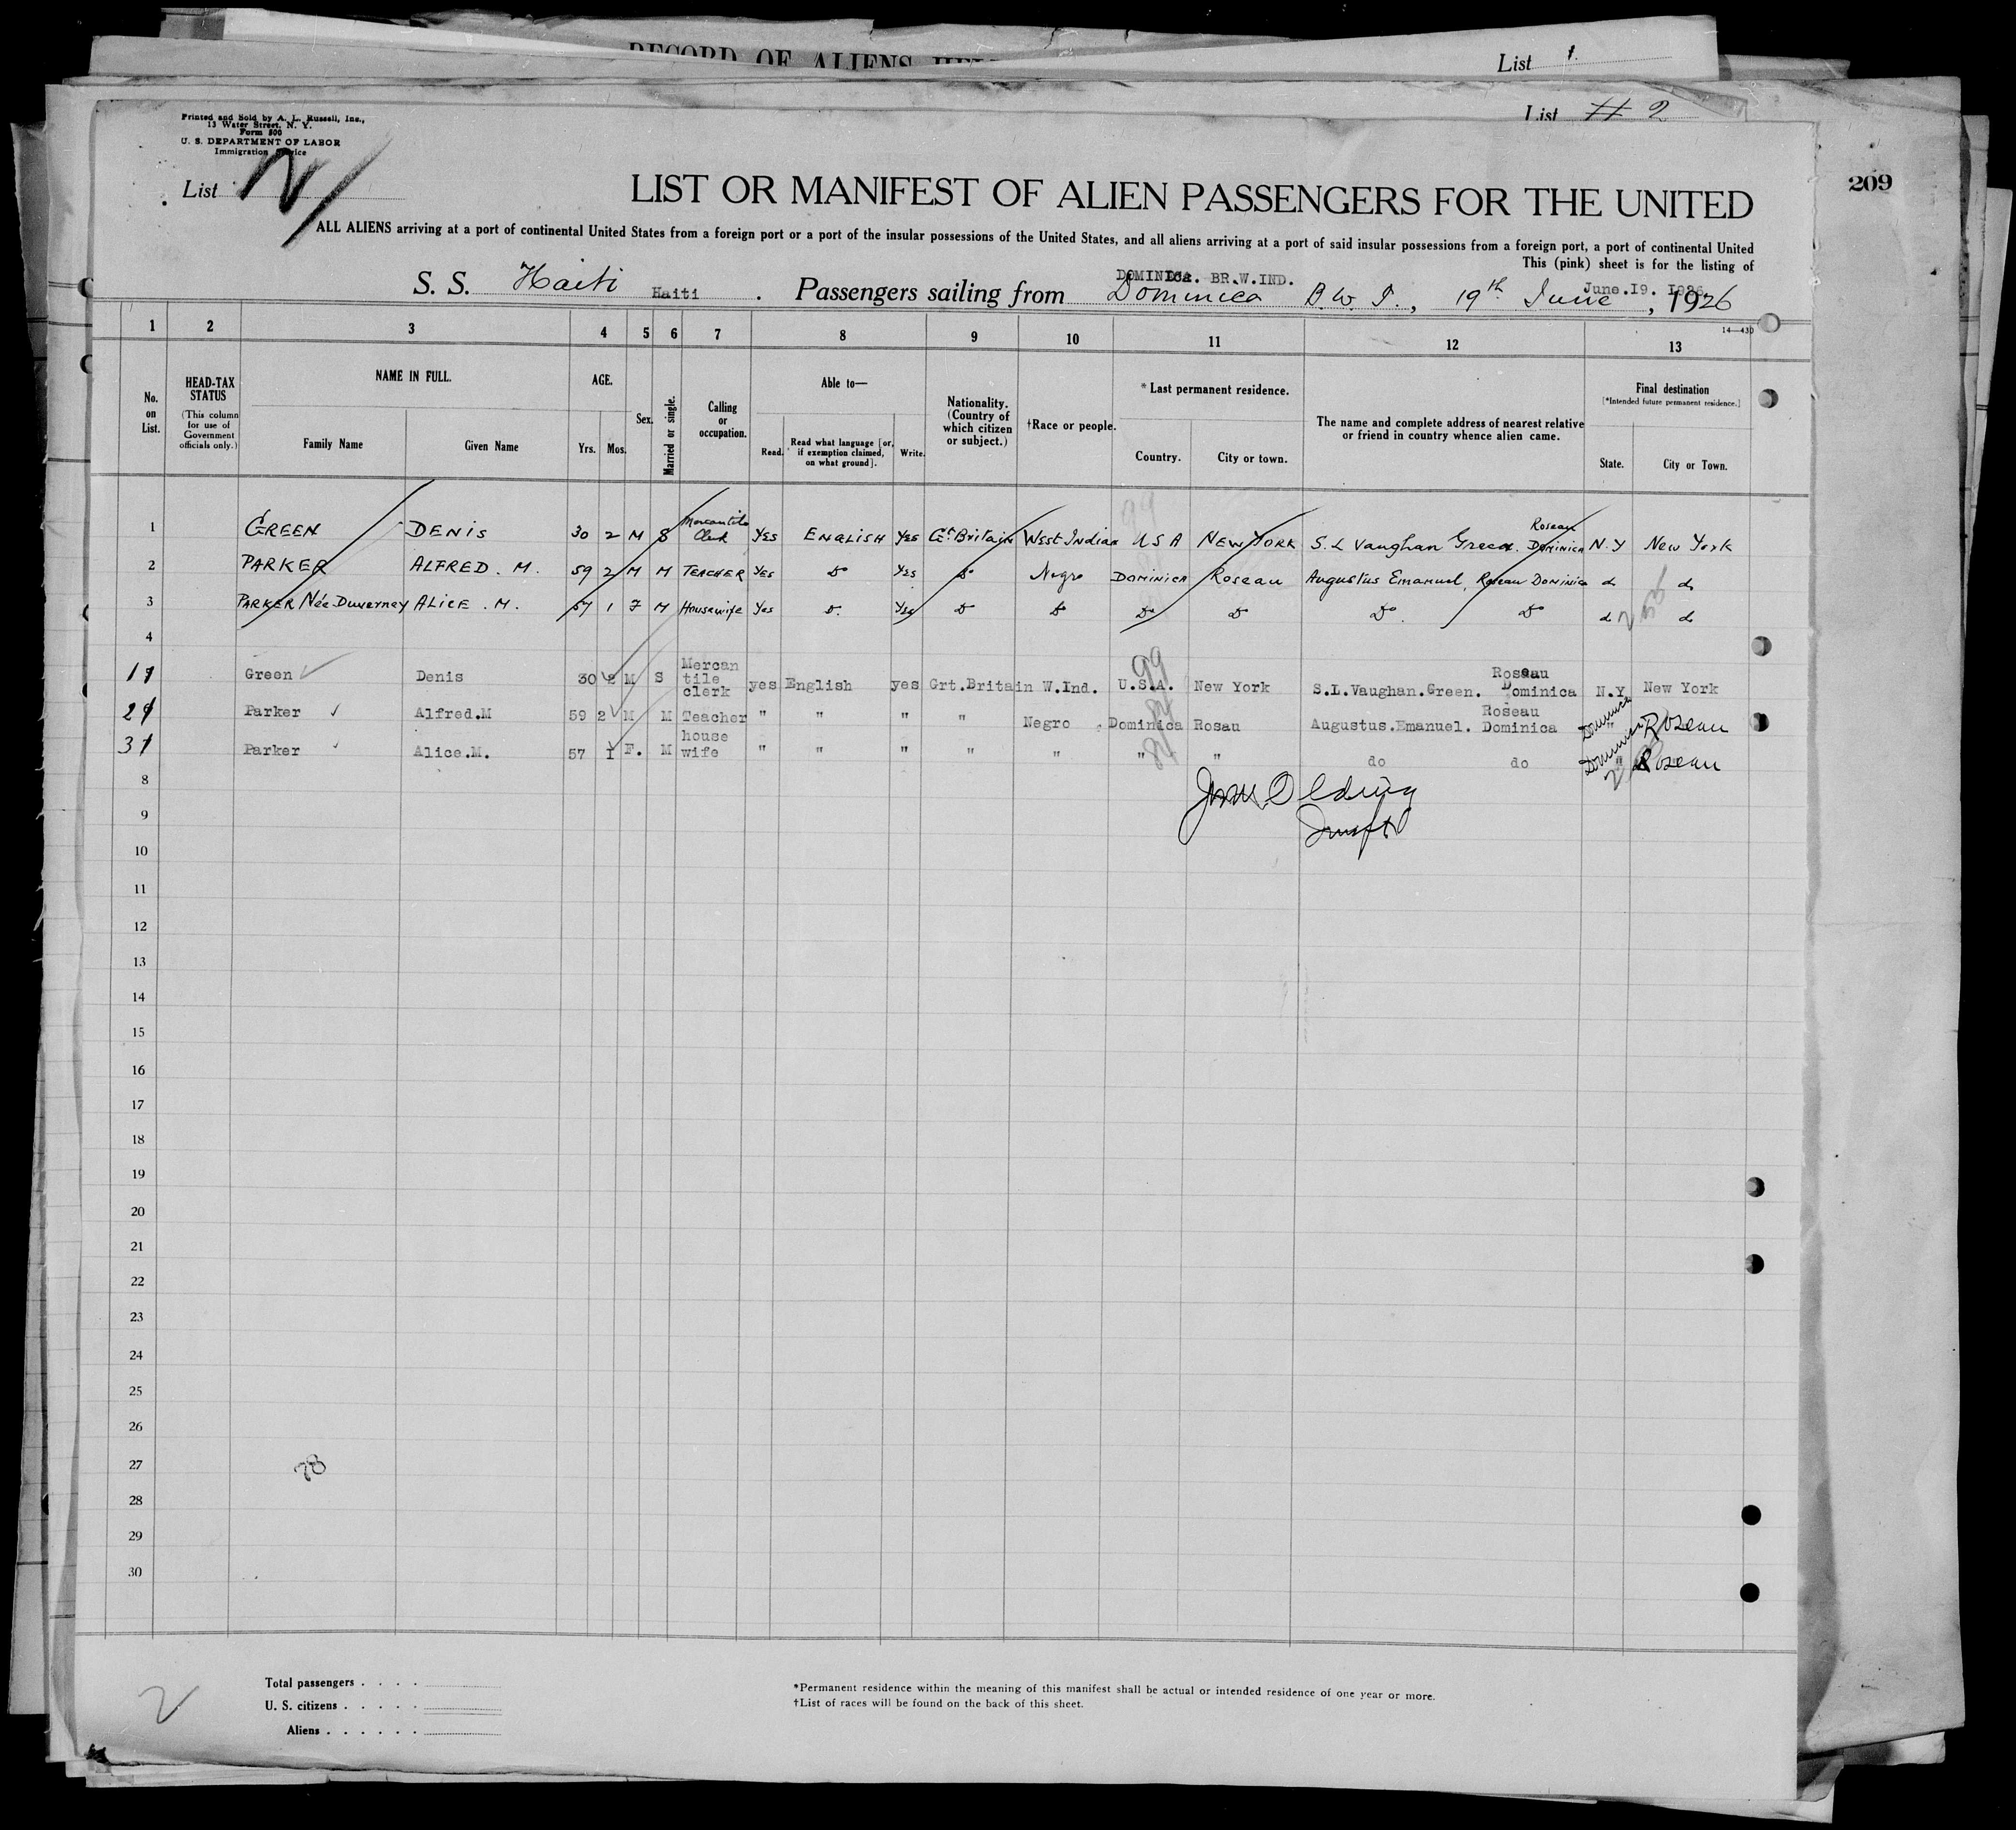 RECORD OF ALIENS
List 1.
List # 2
209
Printed and Sold by A. L. Russell, Inc.,
13 Water Street, N. Y.
Form 500
U. S. DEPARTMENT OF LABOR
Immigration
List
LIST OR MANIFEST OF ALIEN PASSENGERS FOR THE UNITED
ALL ALIENS arriving at a port of continental United States from a foreign port or a port of the insular possessions of the United States, and all aliens arriving at a port of said insular possessions from a foreign port, a port of continental United
This (pink) sheet is for the listing of
DOMINICA. BR.W.IND.
June.19. 1926.
S. S. Haiti Haiti . Passengers sailing from Dominica B. W. I., 19th June, 1926
14—430
1 2 3 4 5 6 7 8 9 10 11 12 13
No. on List.
HEAD-TAX STATUS (This column for use of Government officials only.)
NAME IN FULL.
Family Name Given Name
AGE.
Yrs. Mos.
Sex.
Married or single.
Calling or occupation.
Able to—
Read. Read what language [or, if exemption claimed, on what ground]. Write.
Nationality. (Country of which citizen or subject.)
†Race or people.
*Last permanent residence.
Country. City or town.
The name and complete address of nearest relative or friend in country whence alien came.
Final destination
[*Intended future permanent residence.]
State. City or Town.
99
1 GREEN DENIS 30 2 M S Mercantile Clerk YES ENGLISH YES Gt Britain West Indian U S A NEW YORK S. L Vaughan Green. Roseau Dominica N.Y New York
2 PARKER ALFRED. M. 59 2 M M TEACHER YES Do YES Do Negro DOMINICA Roseau Augustus Emanuel, Roseau Dominica do do
3 PARKER Née Duverney ALICE. M. 57 1 F M Housewife Yes Do. Yes Do Do Do Do Do. Do do do
4
99
1 Green Denis 30 2 M S Mercan tile clerk yes English yes Grt.Britain W.Ind. U.S.A. New York S.L.Vaughan.Green. Roseau Dominica N.Y. New York
2 Parker Alfred.M 59 2 M M Teacher " " " " Negro Dominica Rosau Augustus.Emanuel. Roseau Dominica " Dominica Roseau
3 Parker Alice.M. 57 1 F. M house wife " " " " " " " do do " Dominica Roseau
8
9
10
11
12
13
14
15
16
17
18
19
20
21
22
23
24
25
26
27
78
28
29
30
2
Total passengers
U. S. citizens
Aliens
*Permanent residence within the meaning of this manifest shall be actual or intended residence of one year or more.
†List of races will be found on the back of this sheet.